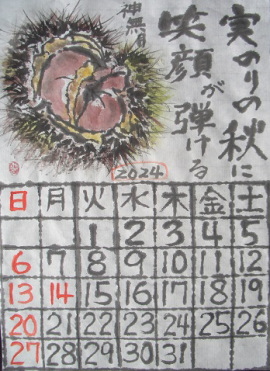 実のりの秋に
笑顔が弾ける
神無月
2024
日 月 火 水 木 金 土
1 2 3 4 5
6 7 8 9 10 11 12
13 14 15 16 17 18 19
20 21 22 23 24 25 26
27 28 29 30 31